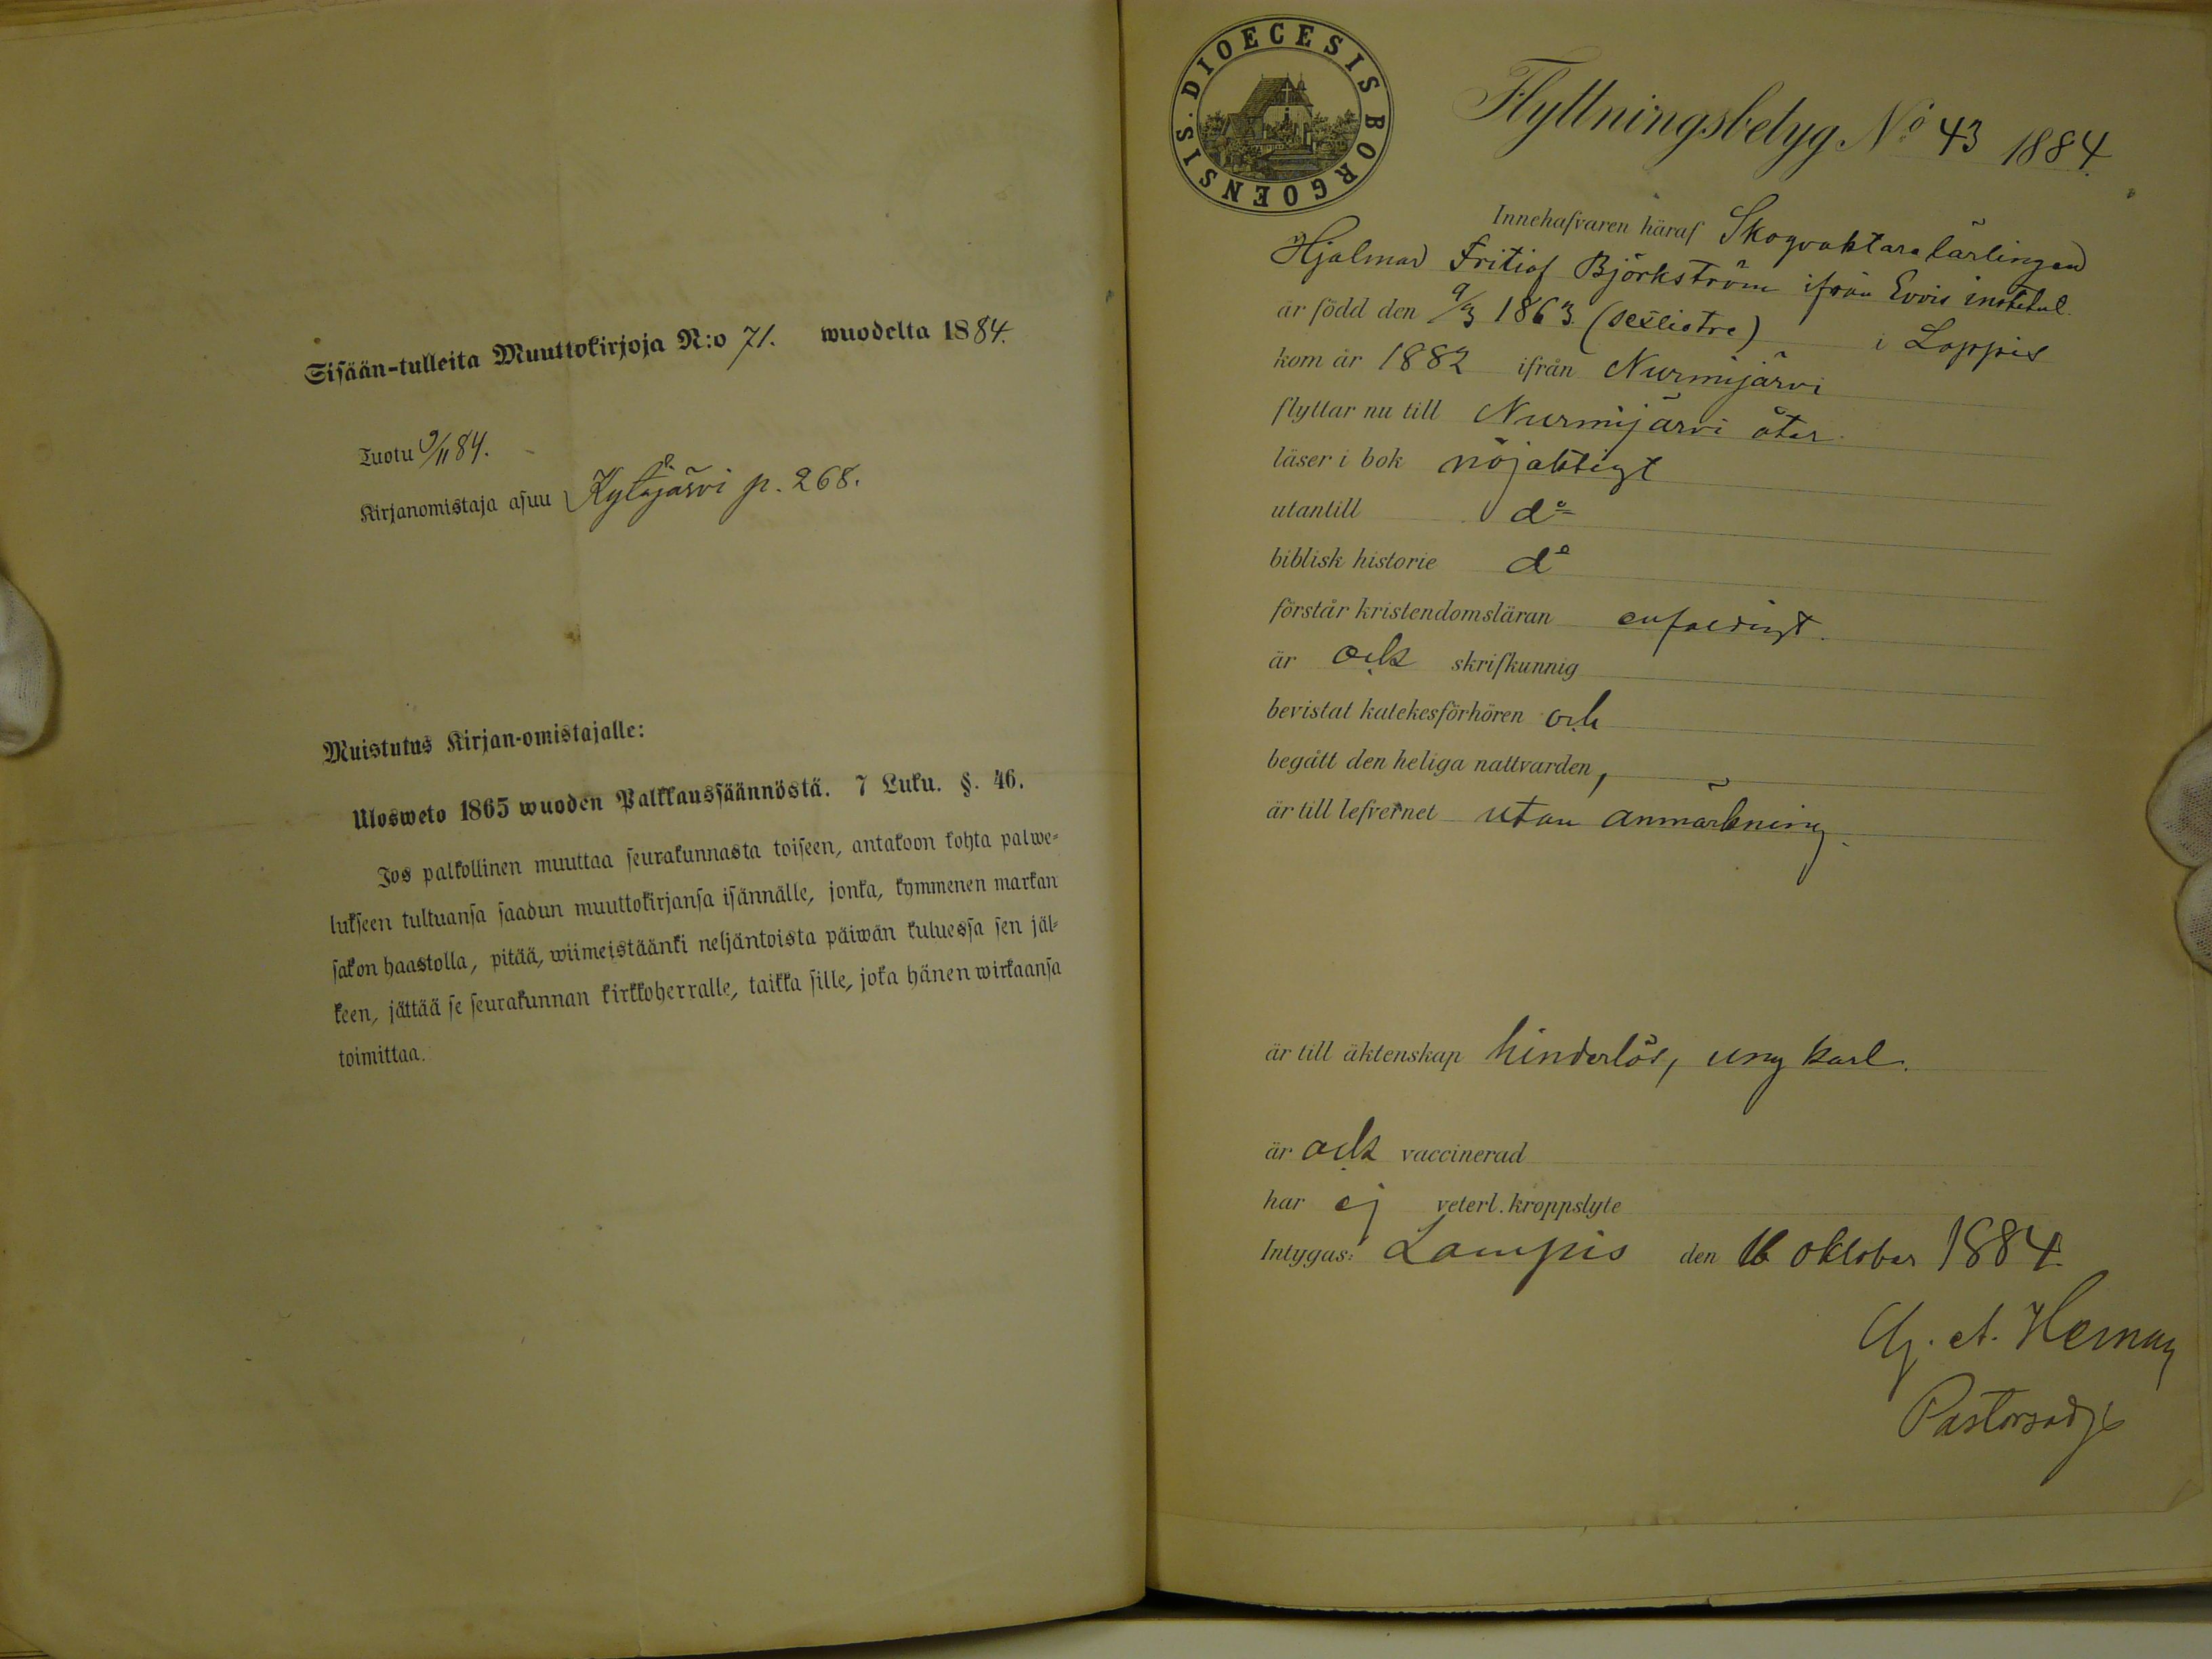 Sisään-tulleita Muuttokirjoja N:o 71. wuodelta 1884.
Tuotu 9/11 84.
Kirjanomistaja asuu Kytäjärvi p. 268.
Muistutus Kirjan-omistajalle:
Ulosweto 1865 wuoden Palkkaussäännöstä. 7 Luku. §. 46.
Jos palkollinen muuttaa seurakunnasta toiseen, antakoon kohta palwe-
lukseen tultuansa saadun muuttokirjansa isännälle, jonka, kymmenen markan
sakon haastolla, pitää, wiimeistäänki neljäntoista päiwän kuluessa sen jäl-
keen, jättää se seurakunnan kirkkoherralle, taikka sille, joka hänen wirkaansa
toimittaa.
DIOECESIS BORGOENSIS.
Flyttningsbetyg No 43 1884.
Innehafvaren häraf Skogvaktare lärlingen
Hjalmar Fritiof Björkström ifrån Evois institut.
är född den 9/3 1863. (sextiotre) i Loppis
kom år 1882 ifrån Nurmijärvi
flyttar nu till Nurmijärvi åter.
läser i bok nöjaktigt
utantill do
biblisk historie do
förstår kristendomsläran enfaldigt.
är ock skrifkunnig
bevistat katekesförhören och
begått den heliga nattvarden,
är till lefvernet utan anmärkning.
är till äktenskap hinderlös, ung karl.
är ock vaccinerad
har ej veterl. kroppslyte
Intygas: Lampis den 16 oktober 1884.
Pastorsadj.